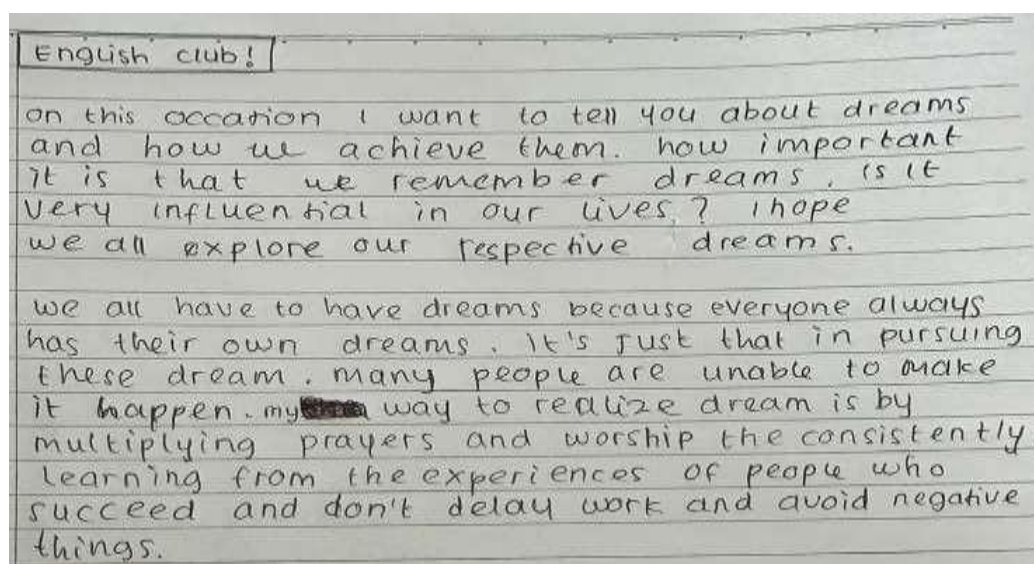 English club!
on this occation I want to tell you about dreams
and how we achieve them. how important
it is that we remember dreams. is it
very influential in our lives? I hope
we all explore our respective dreams.
we all have to have dreams because everyone always
has their own dreams. it's Just that in pursuing
these dream. many people are unable to make
it happen. my way to realize dream is by
multiplying prayers and worship the consistently
learning from the experiences of people who
succeed and don't delay work and avoid negative
things.